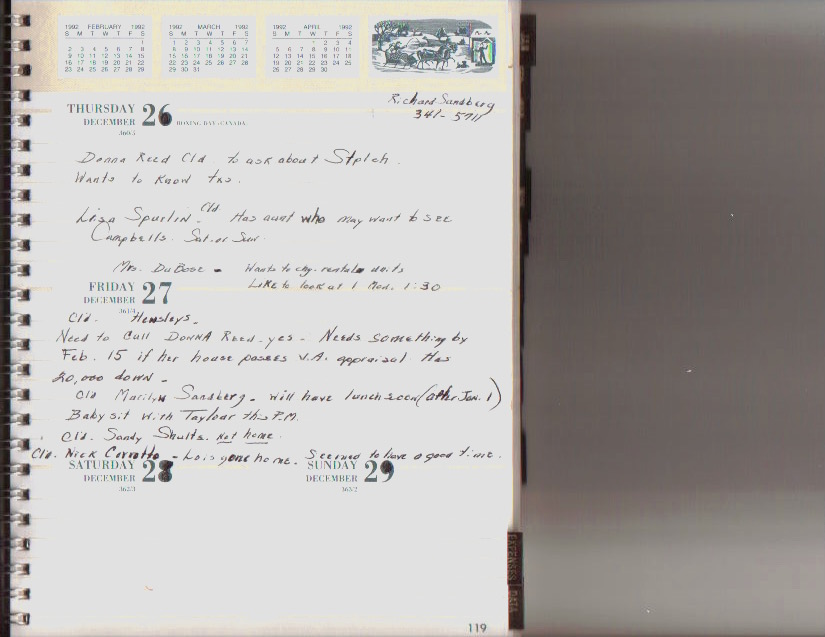 1992 FEBRUARY 1992
S M T W T F S
1
2 3 4 5 6 7 8
9 10 11 12 13 14 15
16 17 18 19 20 21 22
23 24 25 26 27 28 29
1992 MARCH 1992
S M T W T F S
1 2 3 4 5 6 7
8 9 10 11 12 13 14
15 16 17 18 19 20 21
22 23 24 25 26 27 28
29 30 31
1992 APRIL 1992
S M T W T F S
1 2 3 4
5 6 7 8 9 10 11
12 13 14 15 16 17 18
19 20 21 22 23 24 25
26 27 28 29 30
Richard Sandberg
341-5711
THURSDAY
DECEMBER 26 BOXING DAY-CANADA
360/5
Donna Reed Cld to ask about
Wants to know
Lisa Spurlin. Cld. Has aunt who may want to see
Campbells. Sat. or Sun.
Mrs. DuBose - Wants to chg. rental units
Like to look at 1 Mon. 1:30
FRIDAY
DECEMBER 27
361/4
Cld. Hensleys.
Need to Call Donna Reed. yes - Needs something by
Feb. 15 if her house passes V.A. appraisal Has
20,000 down -
Cld Marilyn Sandberg. Will have lunch soon (after Jan. 1)
Baby sit with Taylour this P.M.
Cld. Sandy Shults. Not home.
Cld. Nick - Lois gone home. Seemed to have a good time.
SATURDAY
DECEMBER 28
362/3
SUNDAY
DECEMBER 29
363/2
EXPENSES
DATA
119